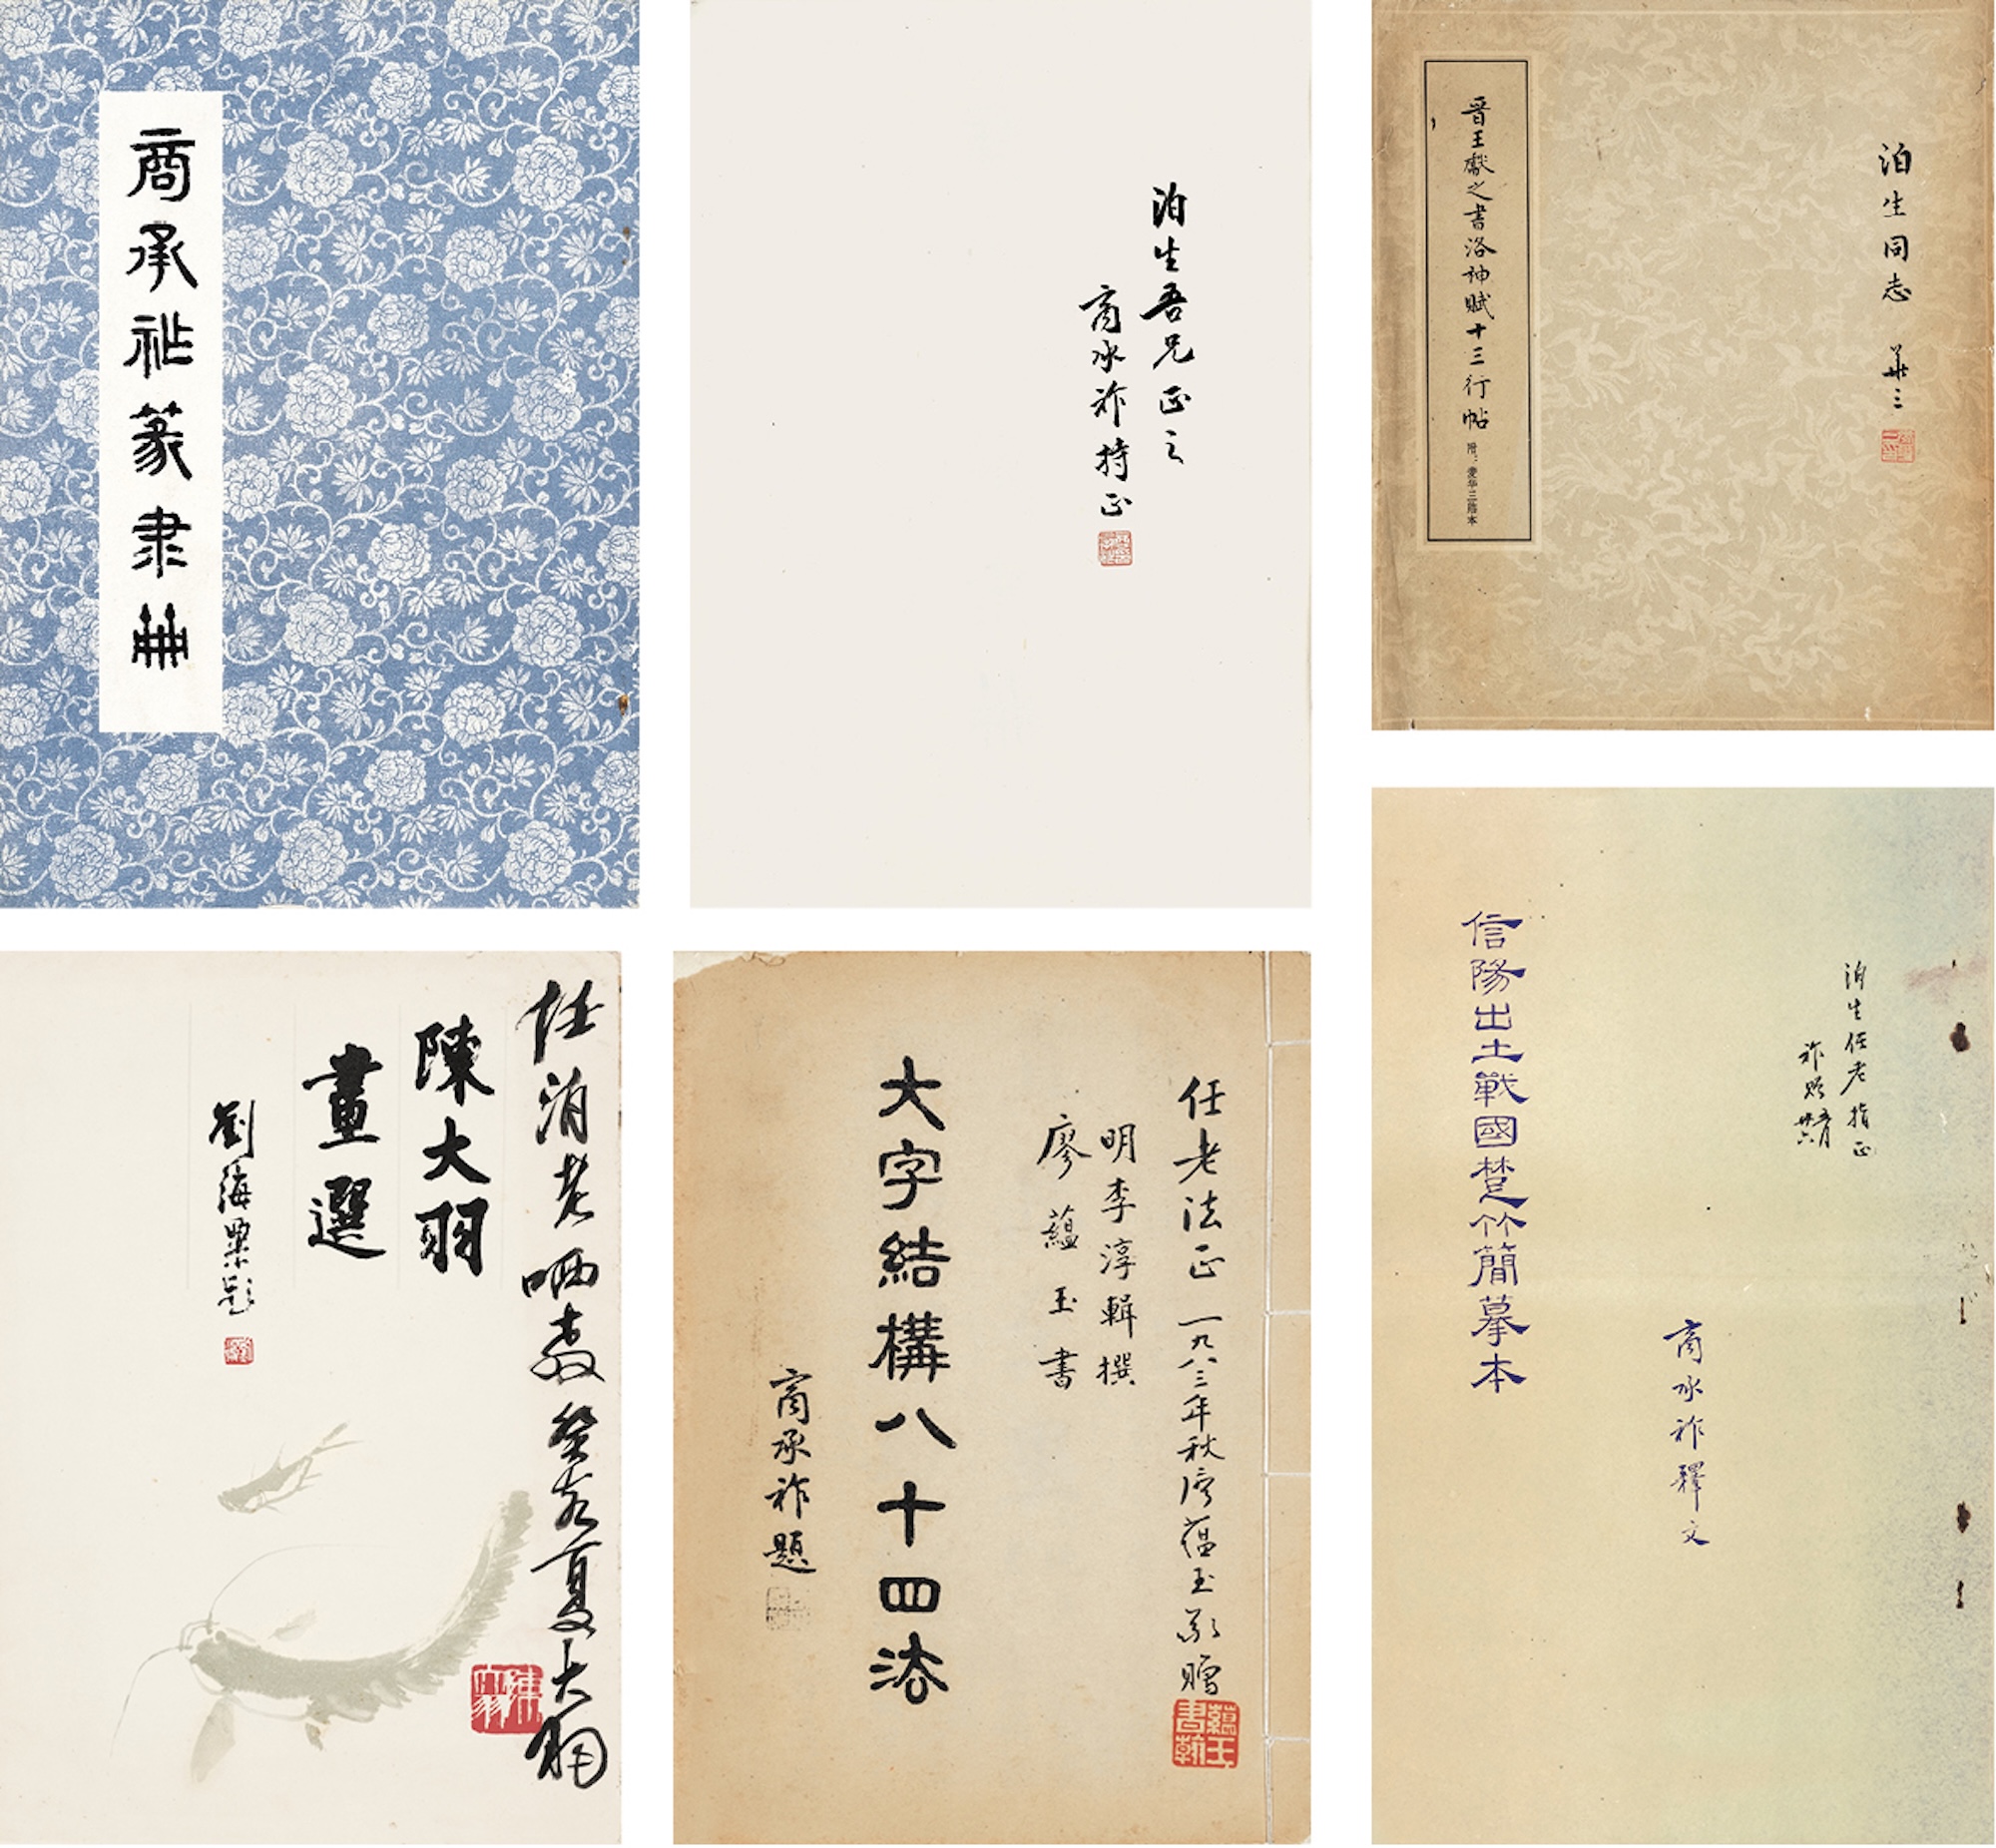 商承祚篆隶册
泊生吾兄正之
商承祚持正
泊生同志 華三
晋王獻之书洛神赋十三行帖
附：麦华三临本
任泊老哂教 癸亥夏大羽
陳大羽
畫選
劉海粟題
任老法正 一九八三年秋 廖蕴玉敬赠
蘊玉書翰
明李淳輯撰
廖蘊玉書
大字結構八十四法
商承祚題
泊生任老指正
祚贻
信陽出土戰國楚竹簡摹本
商承祚釋文